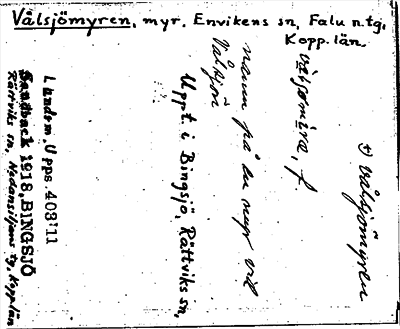 Vålsjömyren, myr, Envikens sn, Falu n.tg,
Kopp. län.
t) Vålsjömyren
vålsjomira, f
namn på en myr vid
Vålsjön
Uppt. i Bingsjö, Rättviks sn,
Landsm. Upps. 403:11
Sandback 1918. BINGSJÖ
Rättviks sn, Nedansiljans tg, Kopp. län